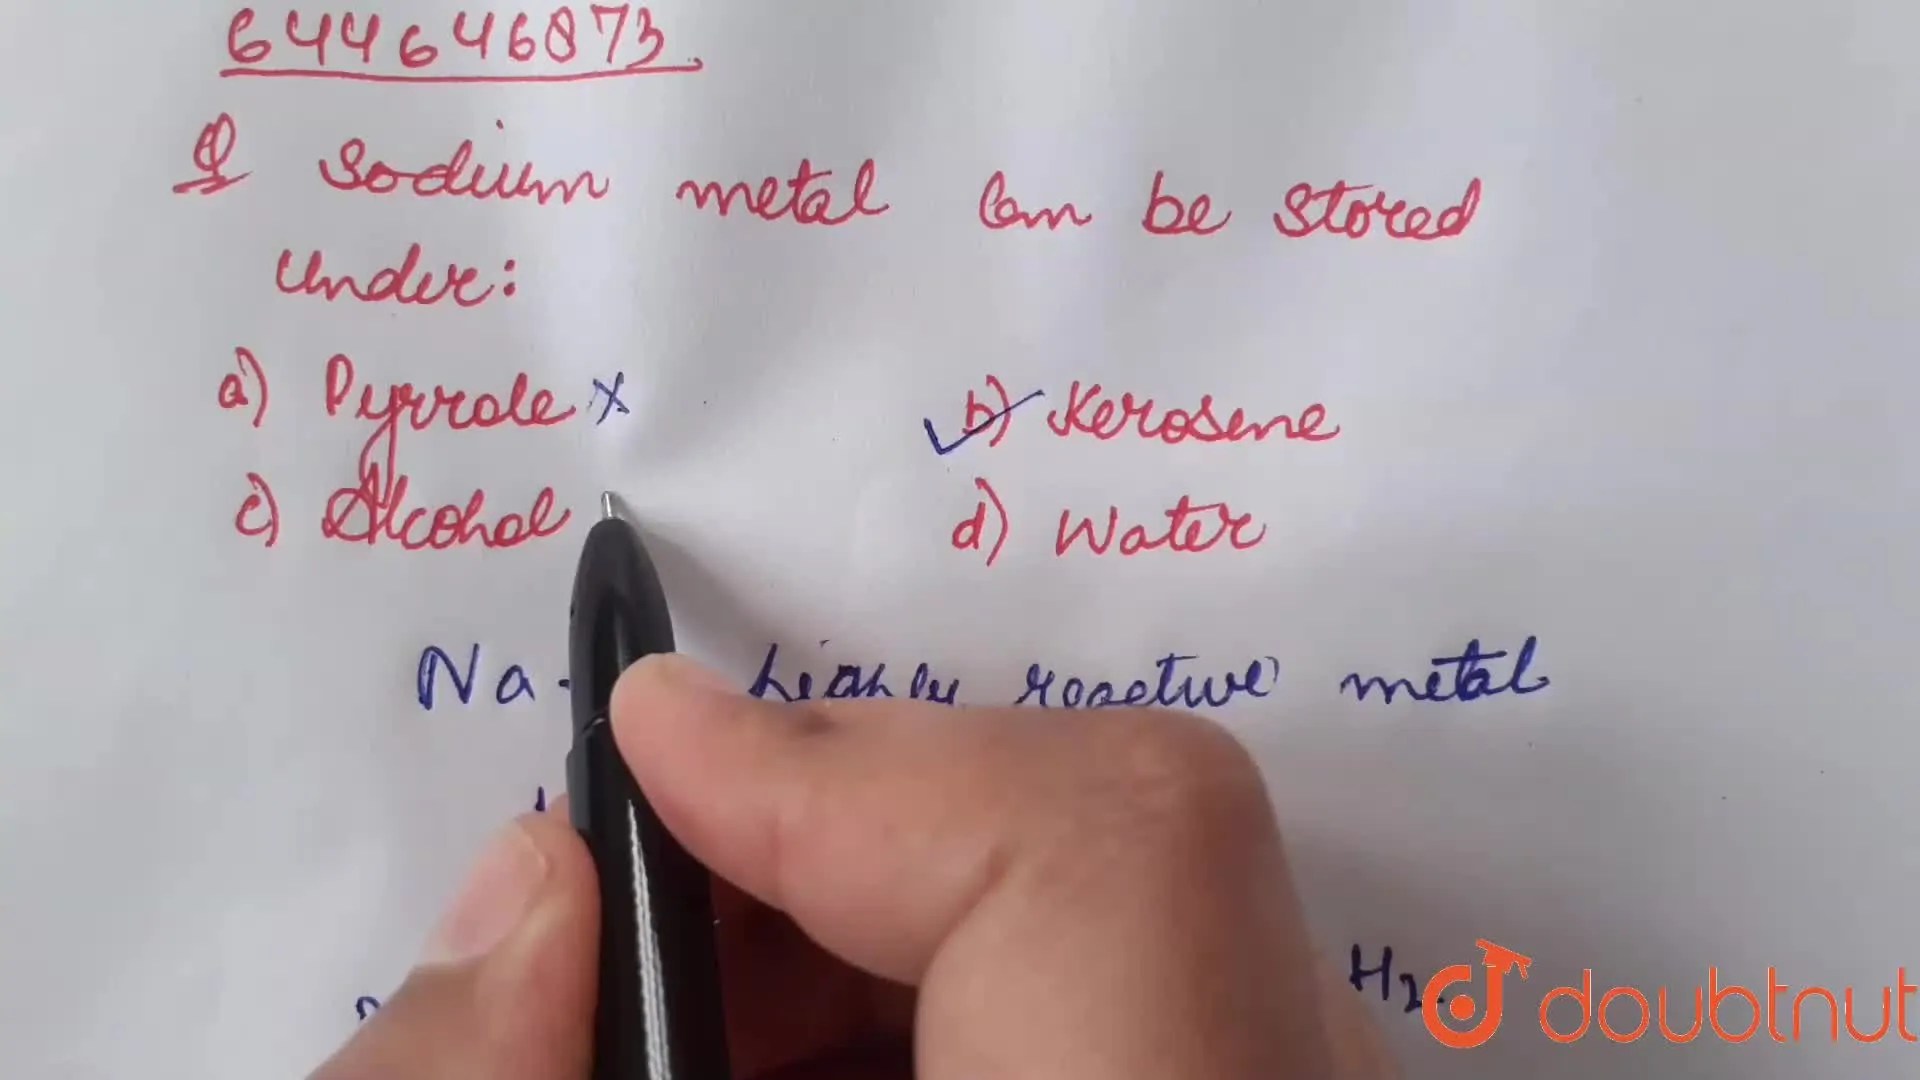 644646873.
Q Sodium metal can be stored
under:
a) Pyrrole x b) Kerosene
c) Alcohol d) Water
Na highly reactive metal
H2.
doubtnut